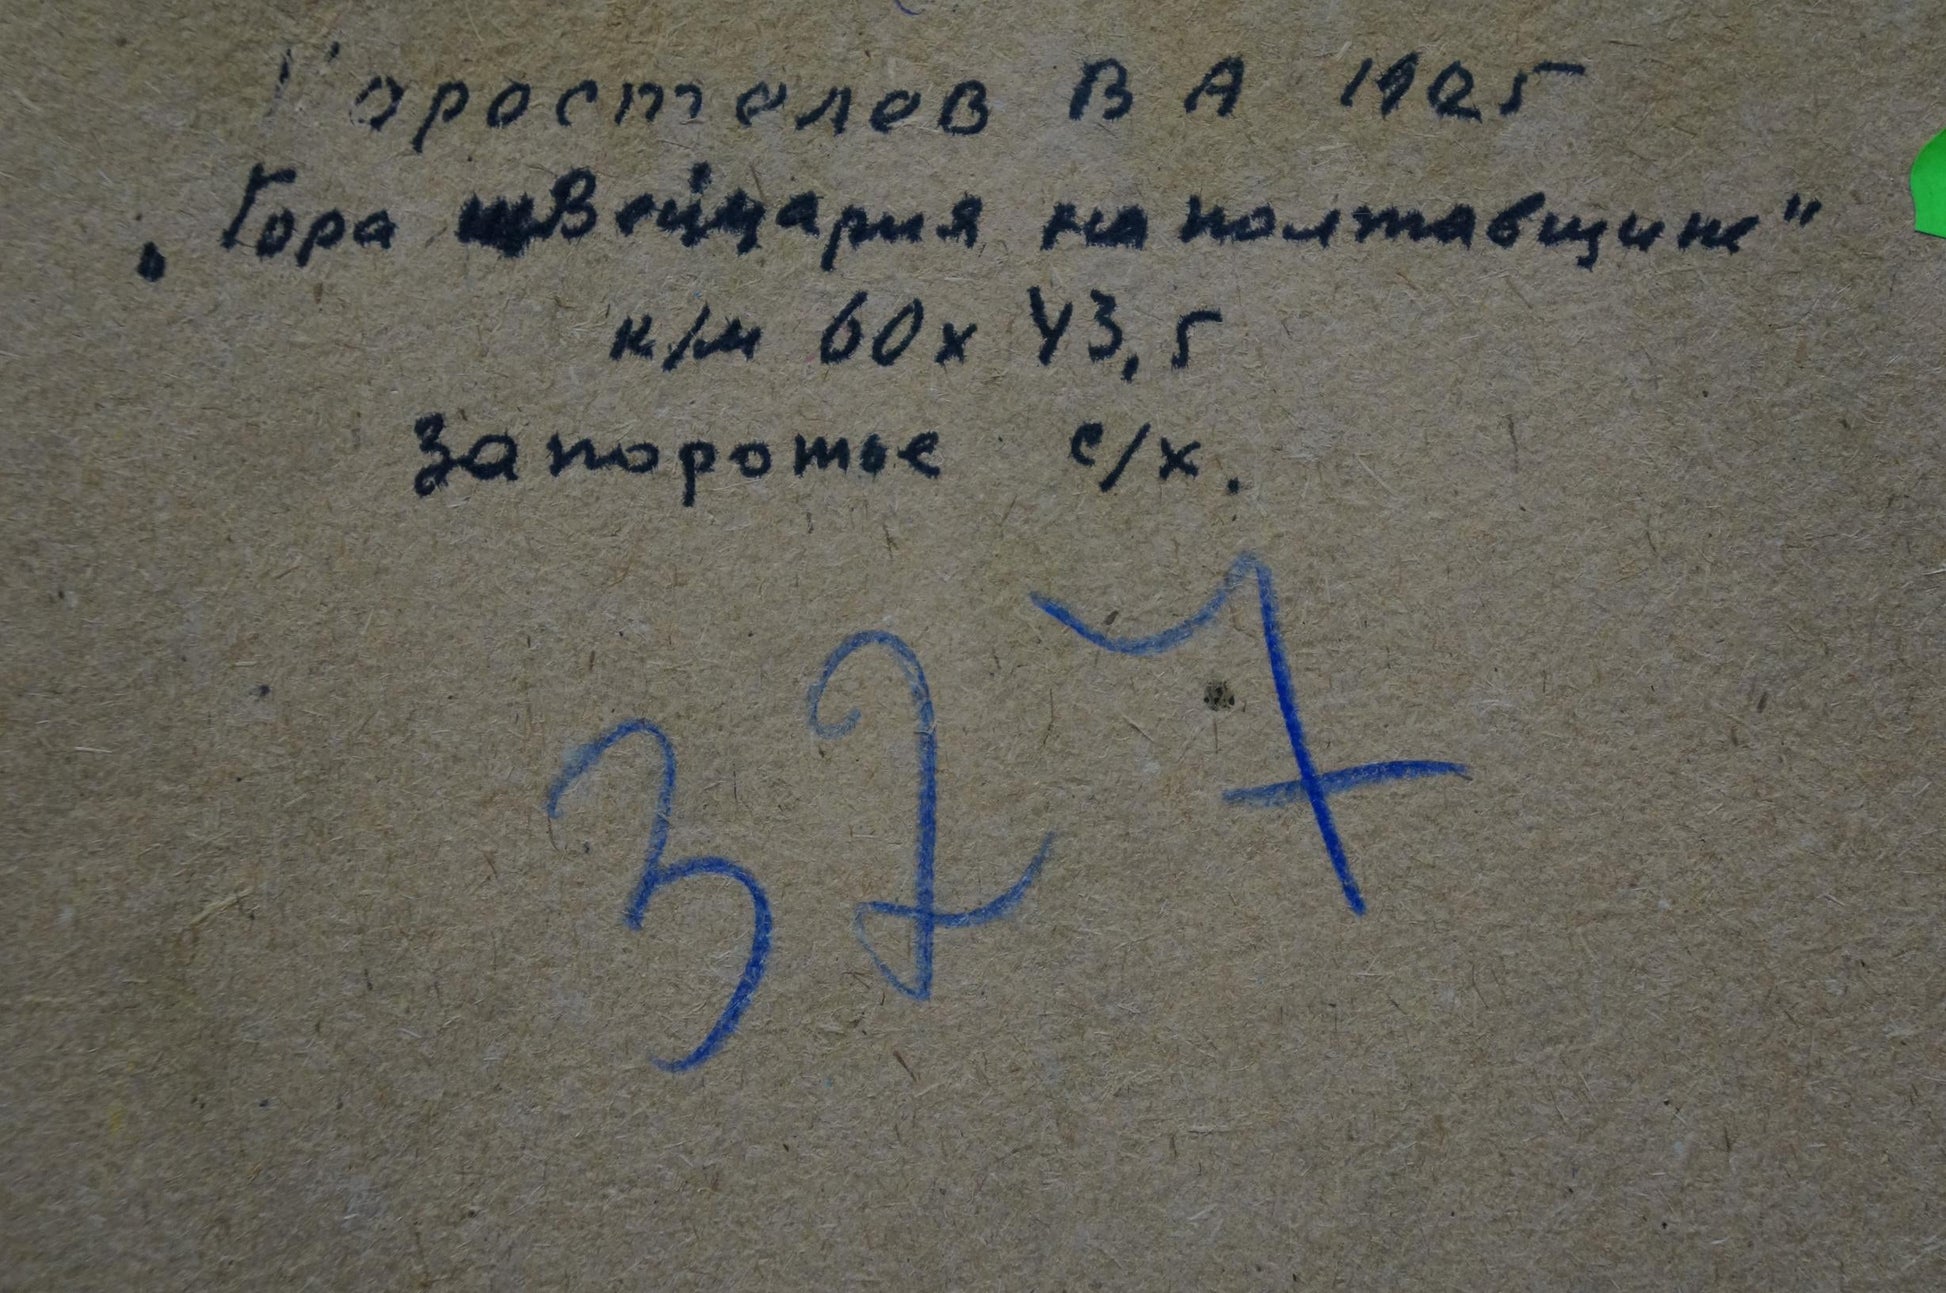 Коросталев В А 1925
„Гора швейцария на полтавщине"
к/м 60х 43,5
Запорожье с/х.
327